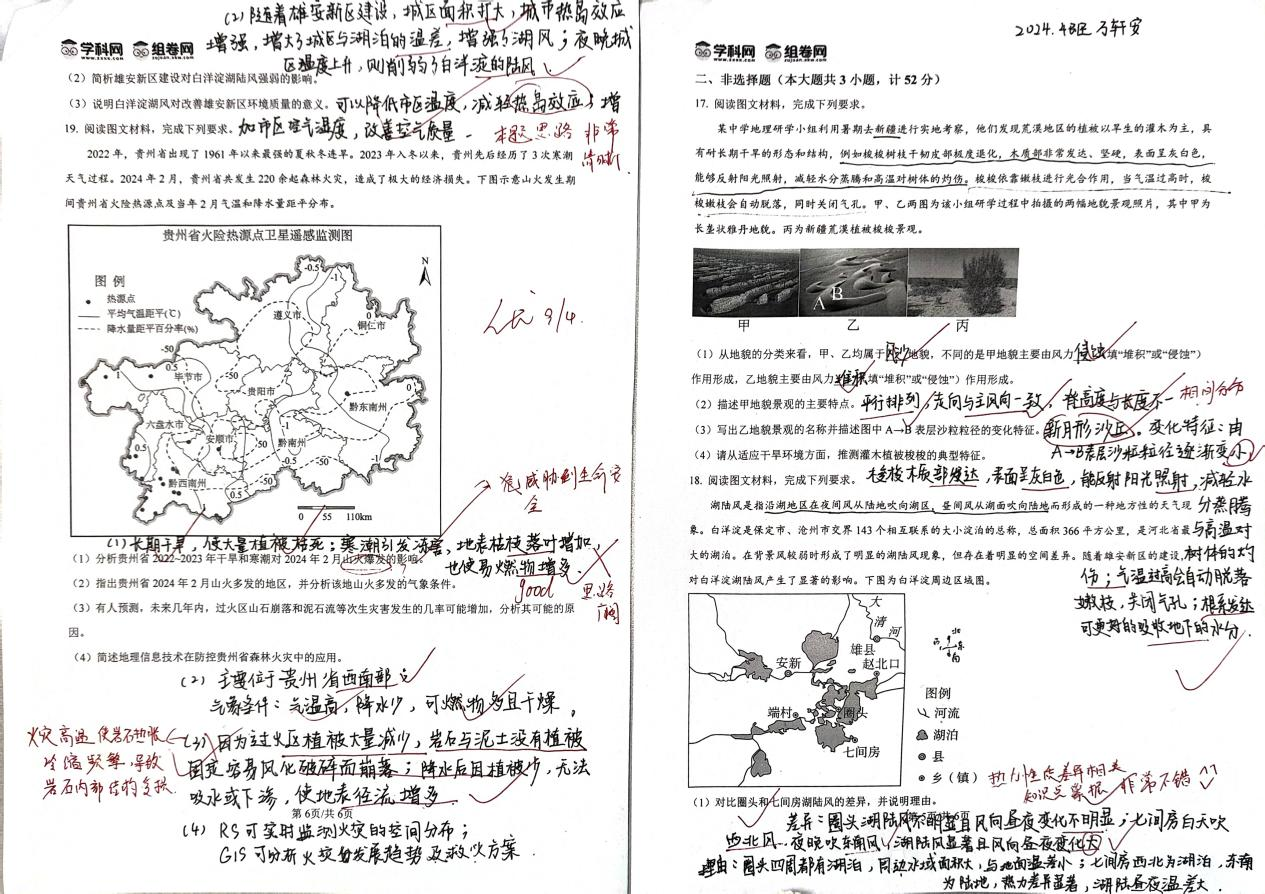 (2)随着雄安新区建设，城区面积扩大，城市热岛效应
增强，增大了城区与湖泊的温差，增强了湖风；夜晚城
区温度上升，则削弱了白洋淀的陆风
学科网 组卷网
(2) 简析雄安新区建设对白洋淀湖陆风强弱的影响。
(3) 说明白洋淀湖风对改善雄安新区环境质量的意义。可以降低市区温度，减轻热岛效应；增
19. 阅读图文材料，完成下列要求。加市区空气湿度，改善空气质量。
本题思路 非常
清晰!
2022 年，贵州省出现了 1961 年以来最强的夏秋冬连旱。2023 年入冬以来，贵州先后经历了 3 次寒潮
天气过程。2024 年 2 月，贵州省共发生 220 余起森林火灾，造成了极大的经济损失。下图示意山火发生期
间贵州省火险热源点及当年 2 月气温和降水量距平分布。
贵州省火险热源点卫星遥感监测图
图 例
热源点
平均气温距平(℃)
降水量距平百分率(%)
N
-0.5
-1
遵义市
0
铜仁市
-50
0.5
毕节市
1
-50
贵阳市
黔东南州
0
六盘水市
安顺市
0.5
黔南州
-1
-0.5
-50
黔西南州
0.5
-50
0 55 110km
(1)长期干旱，使大量植被枯死；寒潮引发冻害，地表枯枝落叶增加，
也使易燃物增多。
(1) 分析贵州省 2022~2023 年干旱和寒潮对 2024 年 2 月山火爆发的影响。
(2) 指出贵州省 2024 年 2 月山火多发的地区，并分析该地山火多发的气象条件。
good
思路
(3) 有人预测，未来几年内，过火区山石崩落和泥石流等次生灾害发生的几率可能增加，分析其可能的原
因。
(4) 简述地理信息技术在防控贵州省森林火灾中的应用。
(2) 主要位于贵州省西南部；
气象条件：气温高，降水少，可燃物多且干燥。
(3) 因为过火区植被大量减少，岩石与泥土没有植被
固定容易风化破碎而崩落；降水后因植被少，无法
吸水或下渗，使地表径流增多。
火灾高温使岩石热胀
冷缩频繁，导致
岩石内部结构变损.
第 6页/共 6页
(4) RS可实时监测火灾的空间分布；
GIS可分析火灾的发展趋势及救火方案.
2024.4BE 万轩安
学科网 组卷网
二、非选择题（本大题共 3 小题，计 52 分）
17. 阅读图文材料，完成下列要求。
某中学地理研学小组利用暑期去新疆进行实地考察，他们发现荒漠地区的植被以旱生的灌木为主，具
有耐长期干旱的形态和结构，例如梭梭树枝干韧皮部极度退化，木质部非常发达、坚硬，表面呈灰白色，
能够反射阳光照射，减轻水分蒸腾和高温对树体的灼伤。梭梭依靠嫩枝进行光合作用，当气温过高时，梭
梭嫩枝会自动脱落，同时关闭气孔。甲、乙两图为该小组研学过程中拍摄的两幅地貌景观照片，其中甲为
长垄状雅丹地貌。丙为新疆荒漠植被梭梭景观。
A B
甲 乙 丙
(1) 从地貌的分类来看，甲、乙均属于风沙地貌，不同的是甲地貌主要由风力侵蚀(填“堆积”或“侵蚀”)
作用形成，乙地貌主要由风力堆积(填“堆积”或“侵蚀”) 作用形成。
(2) 描述甲地貌景观的主要特点。平行排列，走向与主风向一致，脊高度与长度不一 相间分布
(3) 写出乙地貌景观的名称并描述图中 A→B 表层沙粒粒径的变化特征。新月形沙丘。变化特征：由
A→B表层沙粒粒径逐渐变小
(4) 请从适应干旱环境方面，推测灌木植被梭梭的典型特征。
18. 阅读图文材料，完成下列要求。梭梭木质部发达，表面呈灰白色，能反射阳光照射，减轻水
湖陆风是指沿湖地区在夜间风从陆地吹向湖区，昼间风从湖面吹向陆地而形成的一种地方性的天气现 分蒸腾
象。白洋淀是保定市、沧州市交界 143 个相互联系的大小淀泊的总称，总面积 366 平方公里，是河北省最 与高温对
大的湖泊。在背景风较弱时形成了明显的湖陆风现象，但存在着明显的空间差异。随着雄安新区的建设， 树体的灼
对白洋淀湖陆风产生了显著的影响。下图为白洋淀周边区域图。
伤；气温过高会自动脱落
嫩枝，关闭气孔；根系发达
可更好的吸收地下的水分.
大
清
河
雄县
安新
赵北口
端村
圈头
七间房
北
西 东
南
图例
河流
湖泊
县
乡（镇）
热力性质差异相关
知识点掌握 非常不错^^
(1) 对比圈头和七间房湖陆风的差异，并说明理由。
差异：圈头湖陆风不明显且风向昼夜变化不明显；七间房白天吹
西北风，夜晚吹东南风，湖陆风显著且风向昼夜变化大
理由：圈头四周都有湖泊，周边水域面积大，与地面温差小；七间房西北为湖泊，东南
为陆地，热力差异显著，湖陆昼夜温差大.